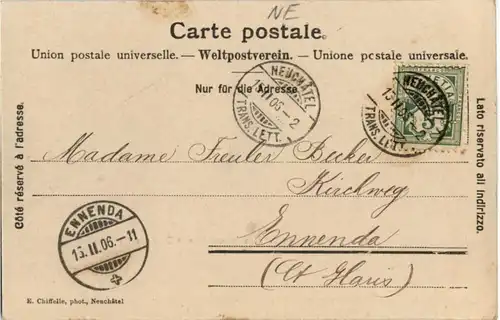 NE
Carte postale.
Union postale universelle. — Weltpostverein. — Unione postale universale.
Nur für die Adresse
NEUCHÂTEL
TRANS. LETT.
NEUCHÂTEL
TRANS. LETT.
Côté réservé à l'adresse.
Lato riservato all indirizzo.
Madame Freuler Becker
Kirchweg
Ennenda
(Ct Glaris)
ENNENDA
15.II.06.-11
E. Chiffelle, phot., Neuchâtel